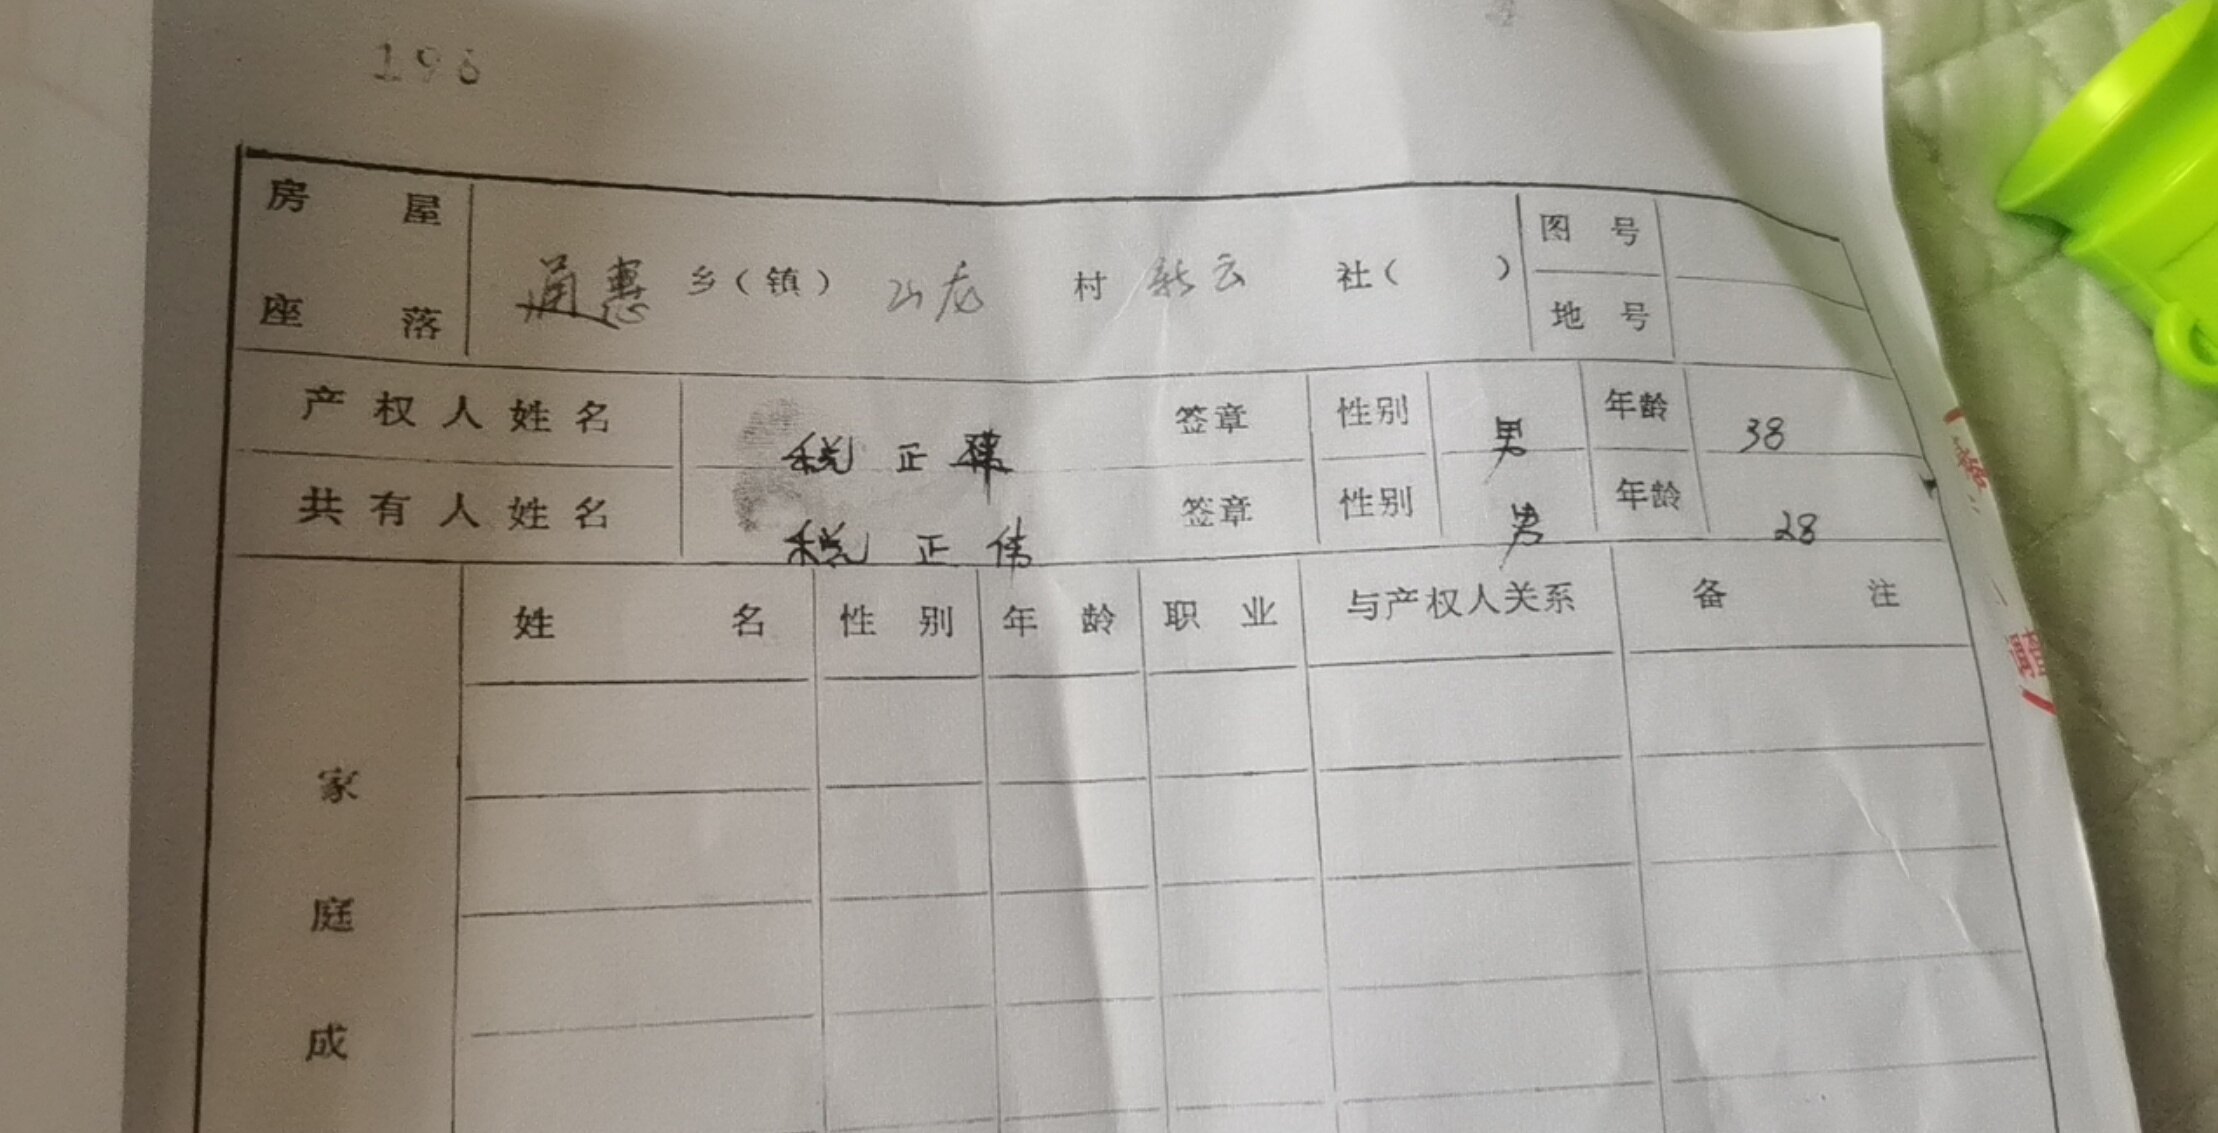 196
房屋座落 通惠 乡（镇） 村 新云 社（ ） 图号
地号
产权人姓名 税正 签章 性别 男 年龄 38
共有人姓名 税正伟 签章 性别 男 年龄 28
姓名 性别 年龄 职业 与产权人关系 备注
家
庭
成